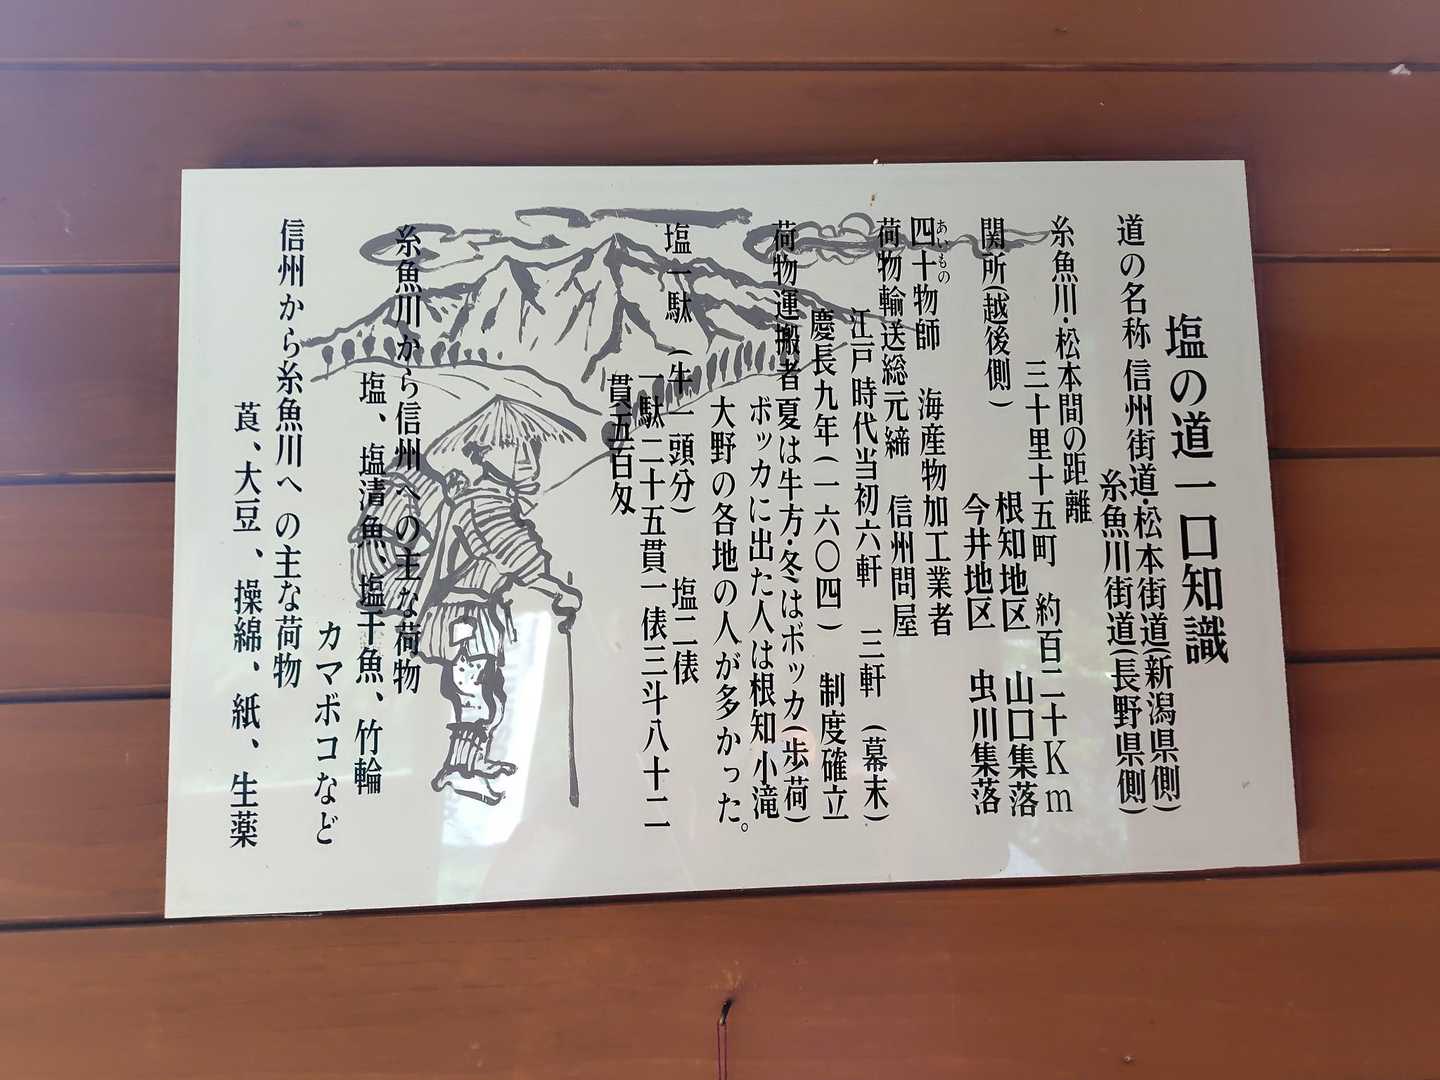 塩の道一口知識
道の名称 信州街道・松本街道(新潟県側)
糸魚川街道(長野県側)
糸魚川・松本間の距離
三十里十五町 約百二十Km
関所(越後側) 根知地区 山口集落
今井地区 虫川集落
四十物師 海産物加工業者
あいもの
荷物輸送総元締 信州問屋
江戸時代当初六軒 三軒(幕末)
慶長九年(一六〇四) 制度確立
荷物運搬者夏は牛方・冬はボッカ(歩荷)
ボッカに出た人は根知小滝
大野の各地の人が多かった。
塩一駄 (牛一頭分) 塩二俵
一駄二十五貫一俵三斗八十二
貫五百匁
糸魚川から信州への主な荷物
塩、塩漬魚、塩干魚、竹輪
カマボコなど
信州から糸魚川への主な荷物
莨、大豆、操綿、紙、生薬